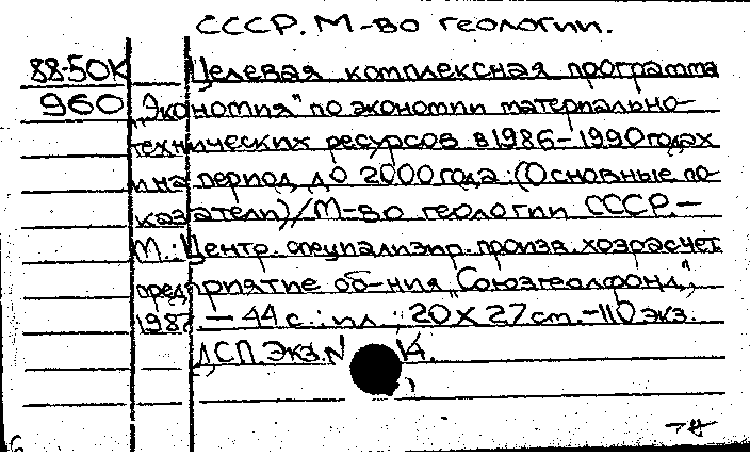 СССР. М-во геологии.
88-50К Целевая комплексная программа
960 "Экономия" по экономии материально-
технических ресурсов в 1986-1990 годах
и на период до 2000 года: (Основные по-
казатели)/М-во геологии СССР.-
М.: Центр. специализир. произв. хозрасчет.
предприятие об-ния "Союзгеолфонд",
1987. - 44 с.: ил.; 20 X 27 cm. - 110 экз.
ДСП. Экз. N 14.